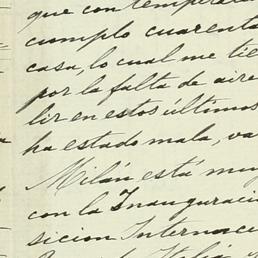 que con temperatu
cumplo cuarenta
casa, lo cual me tie
por la falta de aire
lir en estos últimos
ha estado mala, va
Milán está muy
con la Inauguraci
sicion Internaci